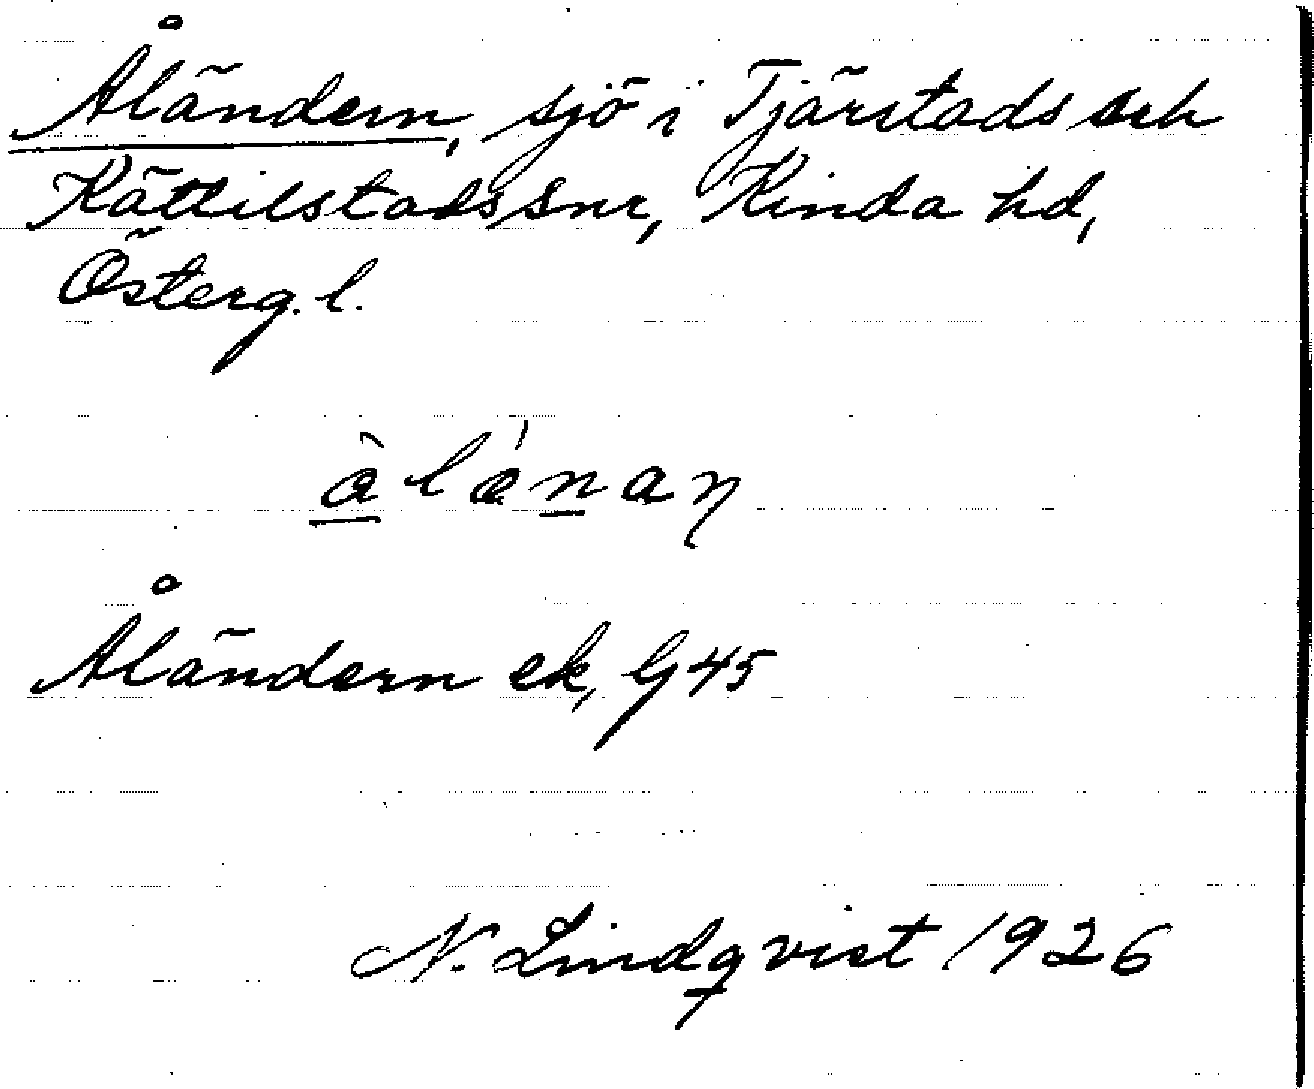 Åländern, sjö i Tjärstads och
Kättilstads snr, Kinda hd,
Österg. l.
Åländern ek, G 45
N. Lindqvist 1926